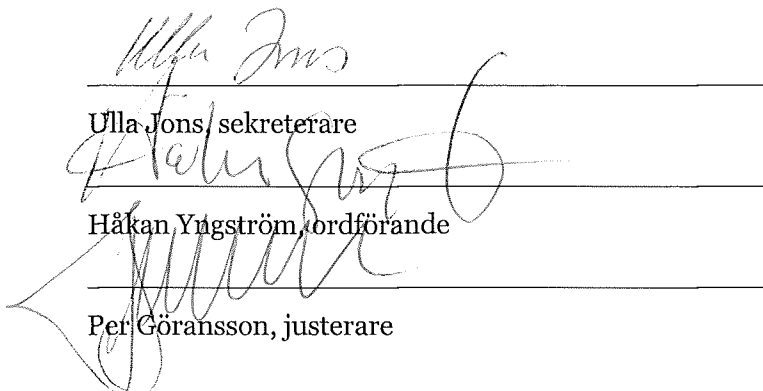 Ulla Jons
Ulla Jons, sekreterare
Håkan
Håkan Yngström, ordförande
Per Göransson, justerare